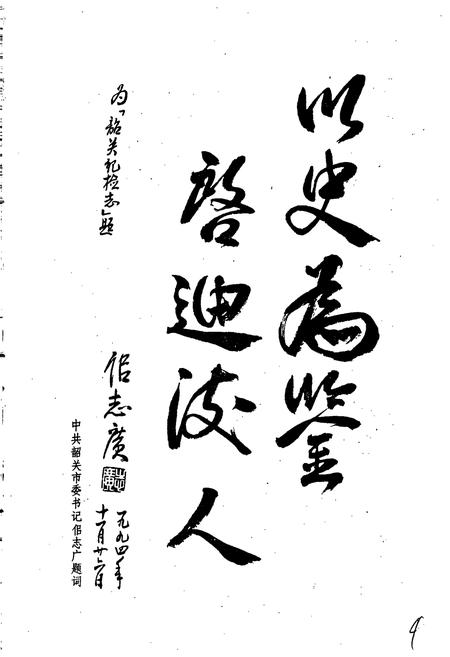 以史为鉴
启迪后人
为「韶关纪检志」题
佀志廣
志廣
一九九四年
十一月廿六日
中共韶关市委书记佀志广题词